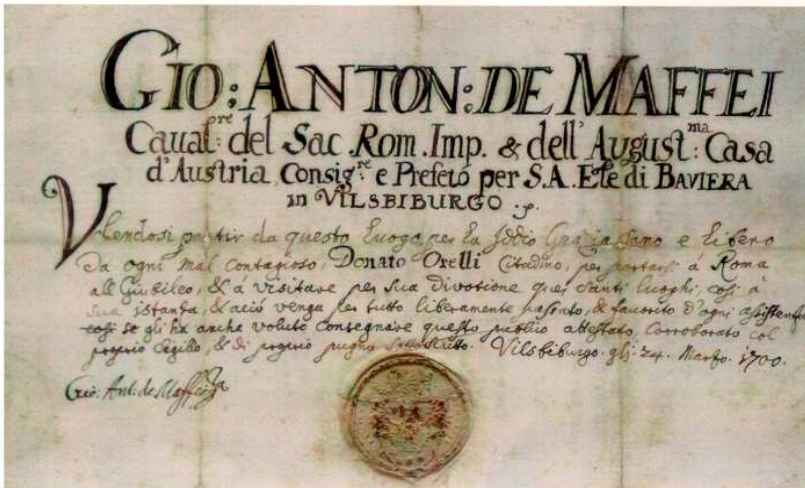 GIO: ANTON: DE MAFFEI
Caual:re del Sac. Rom. Imp. & dell' August:ma Casa
d'Austria, Consig:re e Prefeto per S.A.Ele di BAVIERA
in VILSBIBURGO
Volendosi partir da questo luogo per la Iddio Grazia sano e libero
da ogni mal contagioso, Donato Orelli Citadino, per portarsi á Roma
all Giubileo, & a visitare per sua divotione quei Santi luoghi, cosi á
sua istanza, & ació venga per tutto liberamente passato, & favorito d'ogni
cosi se gli ha anche voluto consegnare questo publio attestato, corroborato col
proprio Sigilio, & di proprio pugno sottoscritto. Vilsbiburgo gli 24. Marzo. 1700.
Gio: Ant: de Maffei